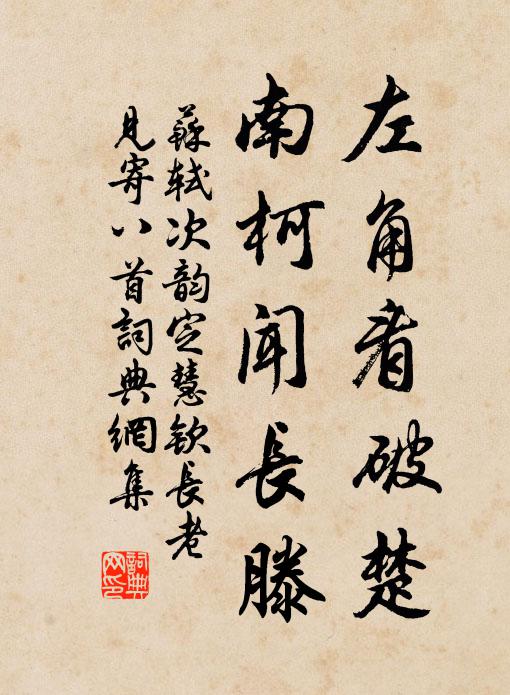 左角看破楚
南柯聞長滕
蘇軾次韵定慧欽長老
見寄八首詞典網集
詞典
网印